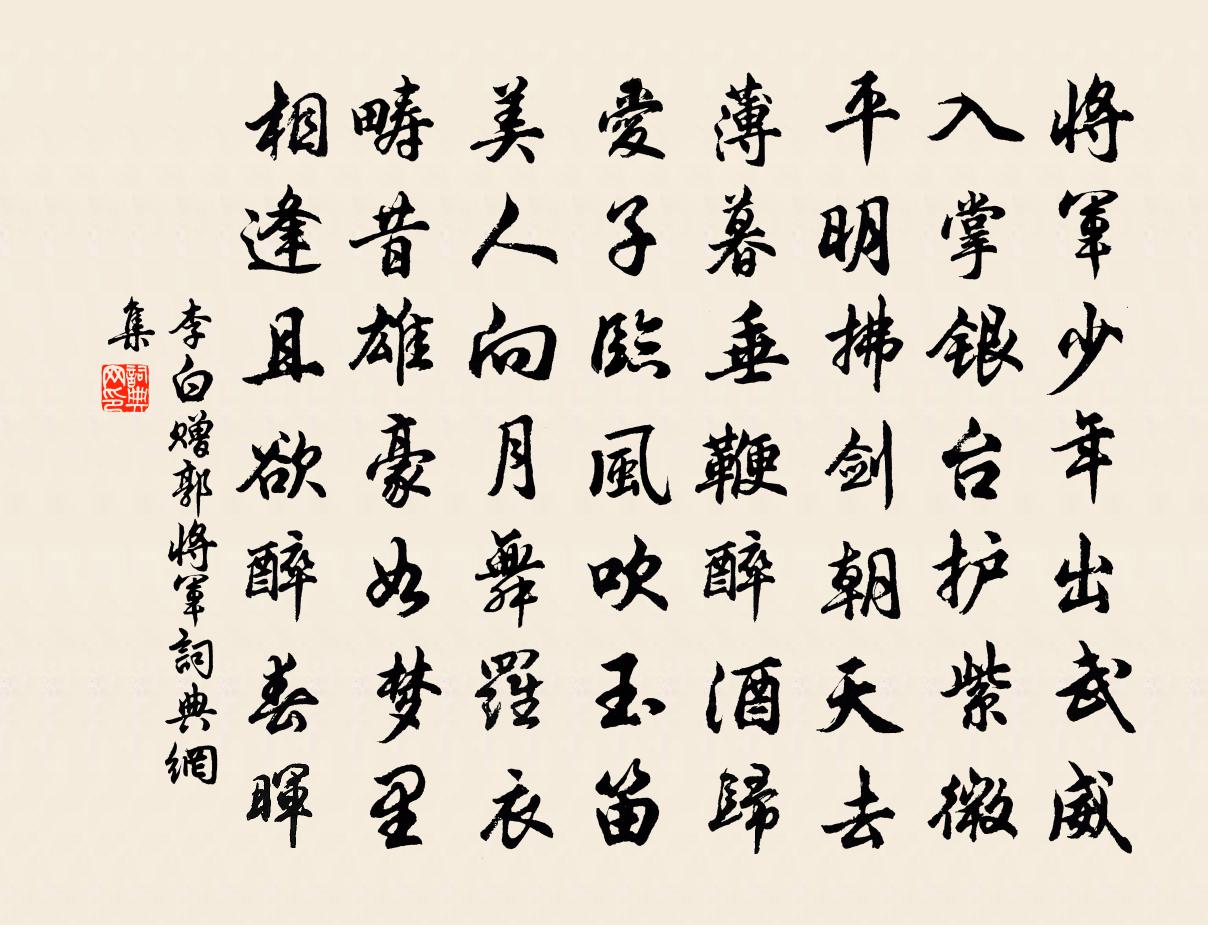 將軍少年出武威
入掌銀台护紫微
平明拂劍朝天去
薄暮垂鞭醉酒歸
愛子臨風吹玉笛
美人向月舞羅衣
疇昔雄豪如梦里
相逢且欲醉春暉
李白贈郭將軍詞典網
集
詞典
网印